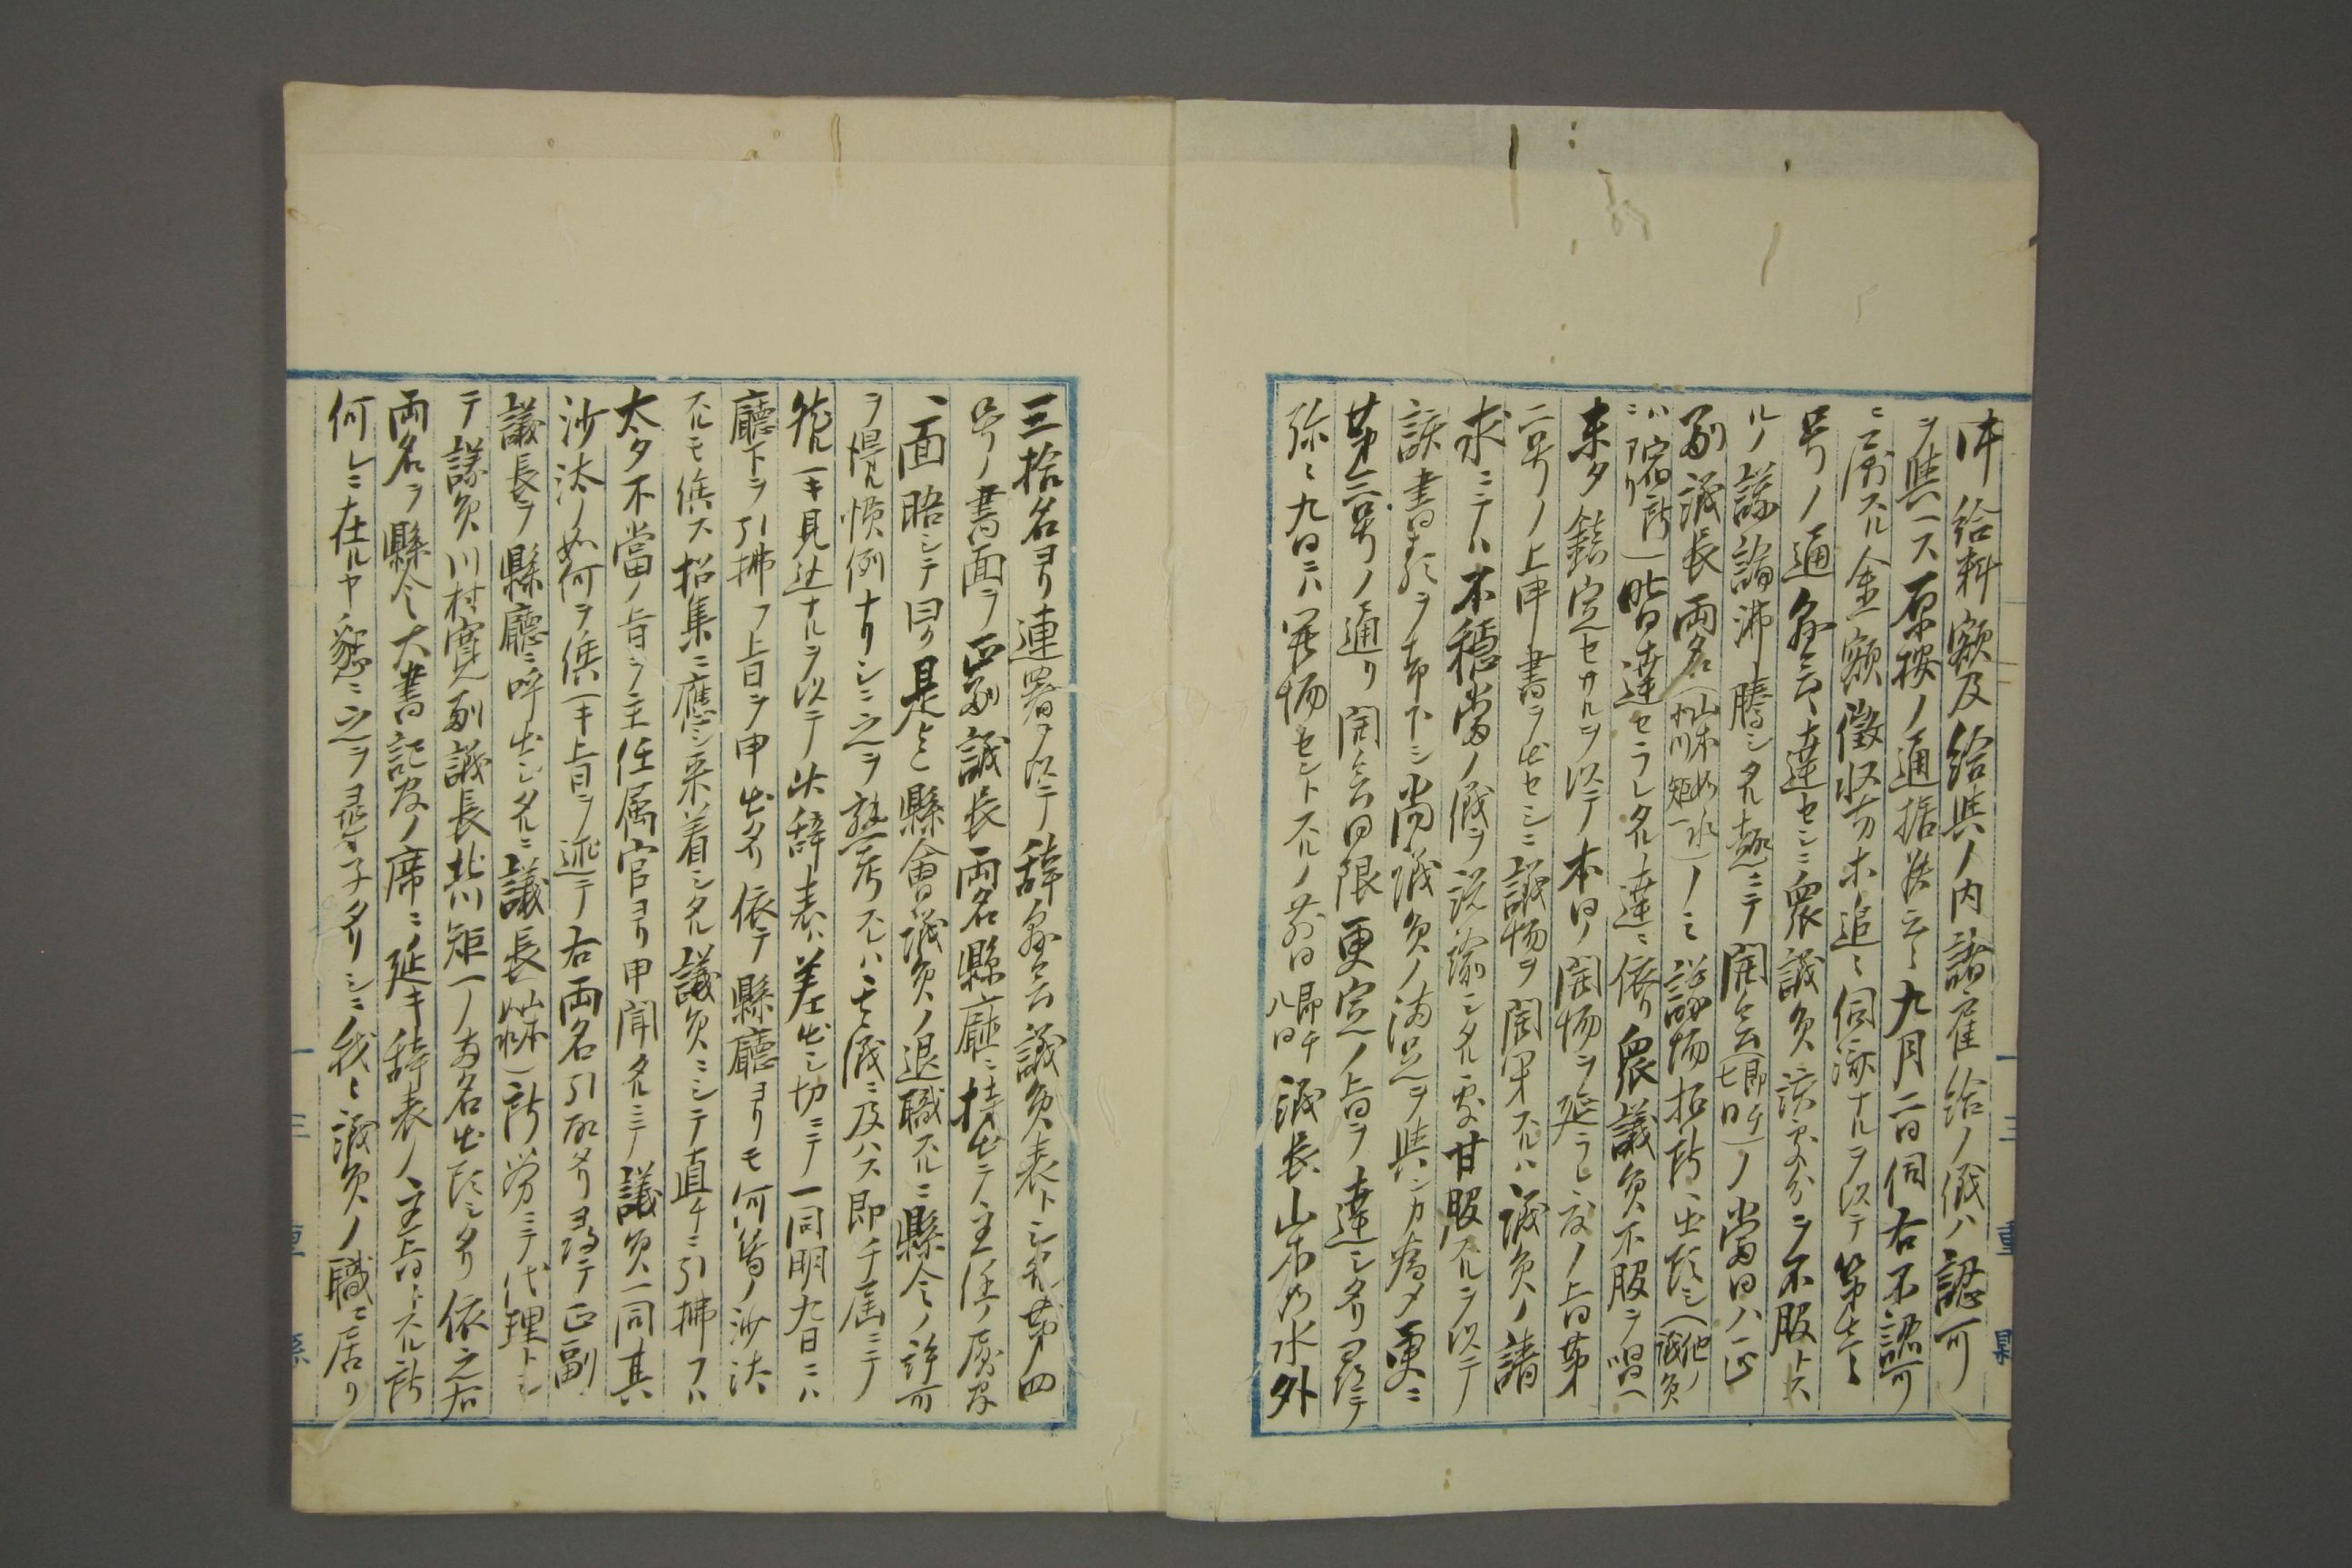 件給料額及給與ノ内諸雇給ノ儀ハ認可
ヲ與ヘス原按ノ通据置云々九月二日伺右不認可
ニ属スル金額徴収方ホ追々伺済ナルヲ以テ第壱
号ノ通会ヘ達セシニ衆議員該処分ヲ不服トス
ルノ議論沸騰シタル趣ニテ開会(即チ七日)ノ当日ハ正
副議長両名(山本如水北川矩一)ノミ議場指所ヘ出頭シ(他ノ議員
ハ宿所ニアリ)皆達セラレタル達ニ依リ衆議員不服ヲ唱ヘ
未タ鎮定セサルヲ以テ本日ノ開場ヲ延ラレ度ノ旨第
二号ノ上申書ヲ出セシニ議場ヲ開ヲスルハ議員ノ請
求ニテハ不穏当ノ儀ヲ説諭シタル処甘服スルヲ以テ
該書類ヲ却下シ尚議員ノ満足ヲ與ンカ為メ更ニ
第三号ノ通リ開会日限更定ノ旨ヲ達シタリ尋テ
弥々九日ニハ開場セントスルノ前日即チ八日議長山本如水外
三拾名ヨリ連署ヲ以テ辞会議員表トシタル第四
号ノ書面ヲ正副議長両名縣廰ニ持出テ主任ノ属官
ニ面晤シテ曰ク是迄縣會議員ノ退職スルニ縣令ノ許可
ヲ得ル慣例ナリシニ之ヲ熟考スレハ其儀ニ及ハス即チ届ニテ
然ルヘキ見込ナルヲ以テ此辞表ハ差出シ切ニテ一同明九日ニハ
廰下ヲ引拂フ旨ヲ申出タリ依テ縣廰ヨリモ何等ノ沙汰
スルモ俟ス招集ニ應シ来着シタル議員ニシテ直チニ引拂フハ
太タ不當ノ旨ヲ主任属官ヨリ申聞タルニテ議員一同其
沙汰ノ如何ヲ俟ヘキ旨ヲ述テ右両名引取タリ尋テ正副
議長ヲ縣廰ニ呼出シタルニ議長(山本如水)所労ニテ代理トシ
テ議員川村寛副議長北川矩一ノ両名出頭シタリ依之右
両名ヲ縣令大書記官ノ席ニ延キ辞表ノ主旨トスル所
何レニ在ルヤ懇ニ之ヲ尋子タリシニ我々議員ノ職ニ居リ
三重縣
三重縣